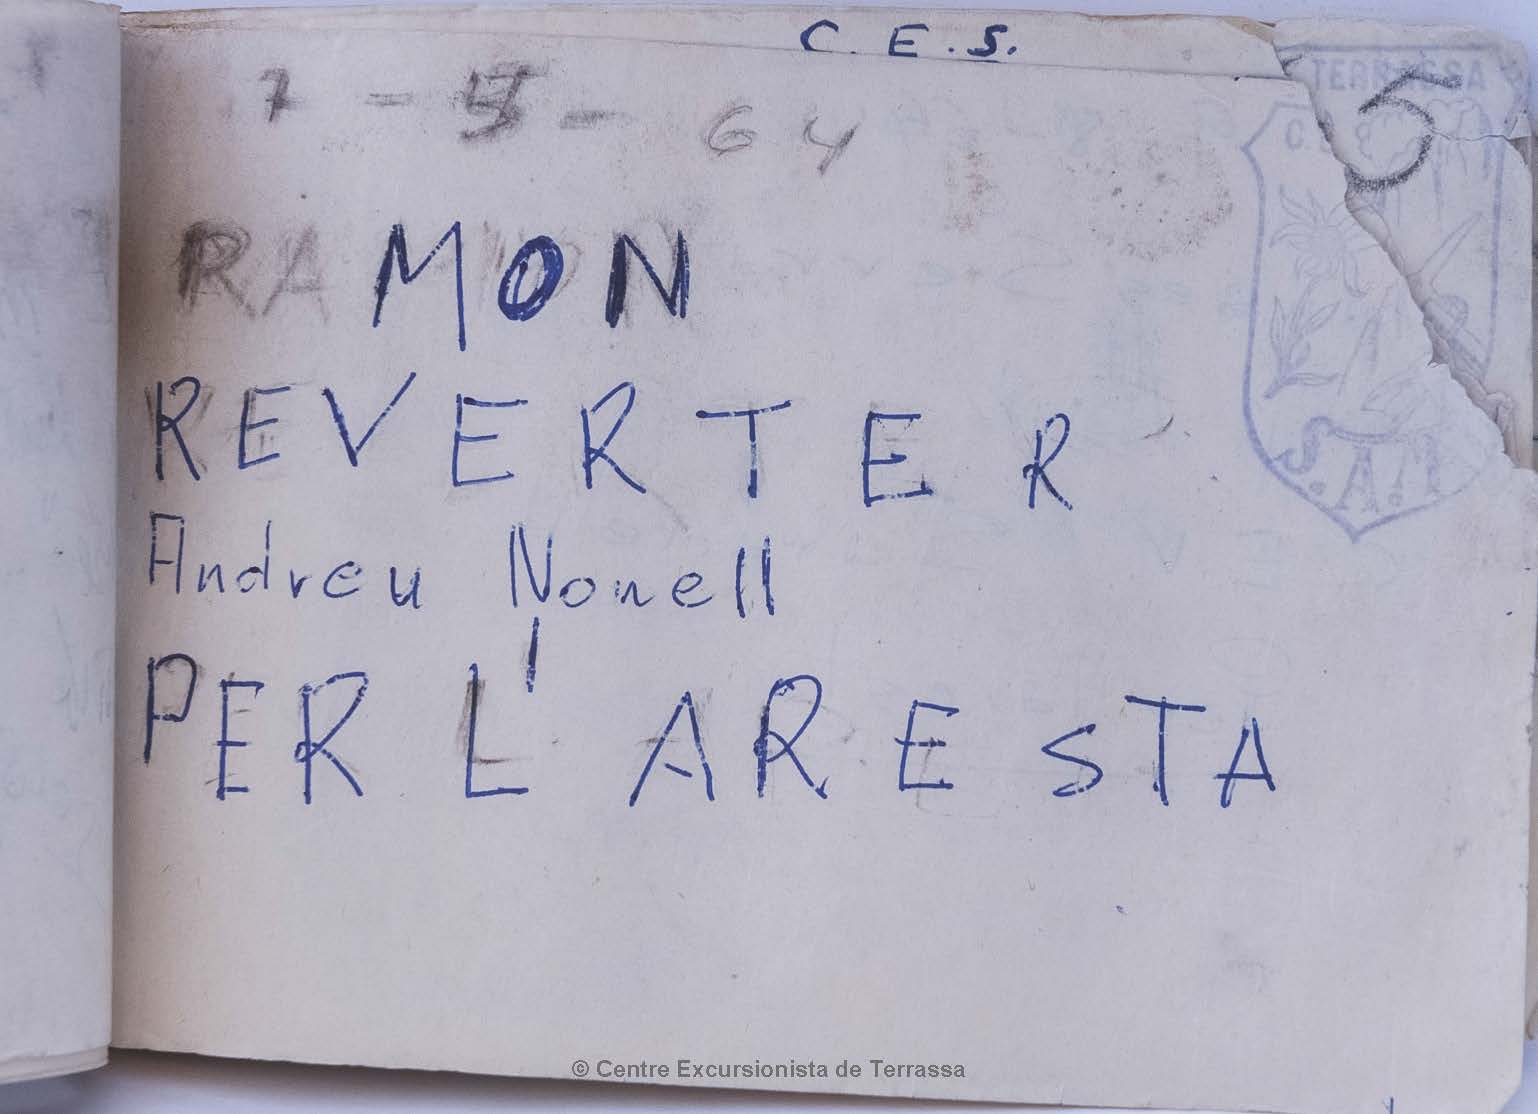 C. E. S.
7 - 5 - 64
5
TERRASSA
RAMON
REVERTER
S.A.M
Andreu Nonell
PER L'ARESTA
© Centre Excursionista de Terrassa